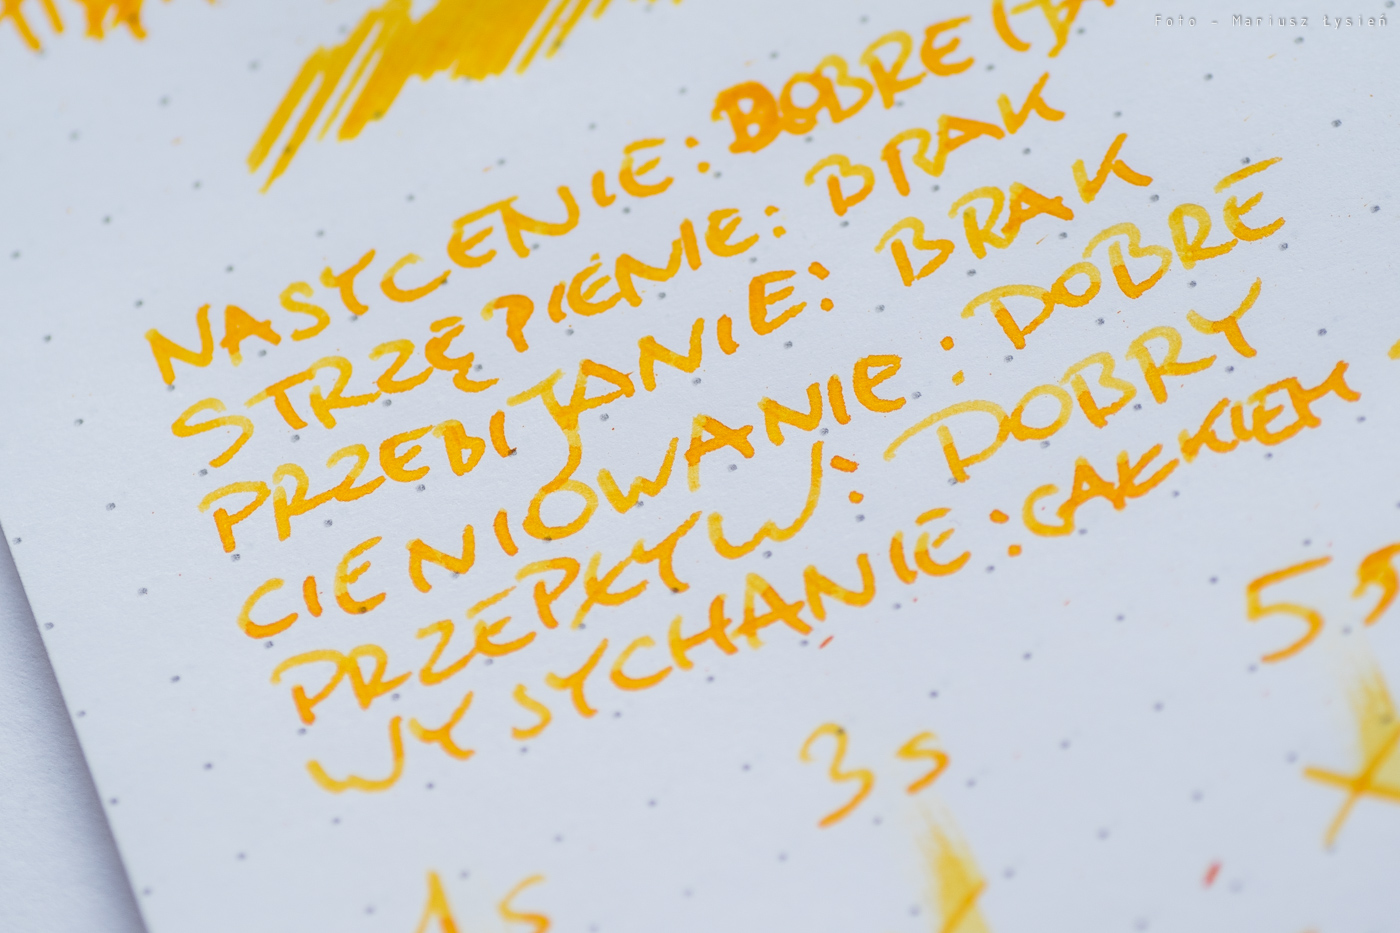 Foto - Mariusz Łysień
NASYCENIE: DOBRE
STRZĘPIENIE: BRAK
PRZEBIJANIE: BRAK
CIENIOWANIE: DOBRE
PRZEPŁYW: DOBRY
WYSYCHANIE: CAŁKIEM
5s
3s
1s